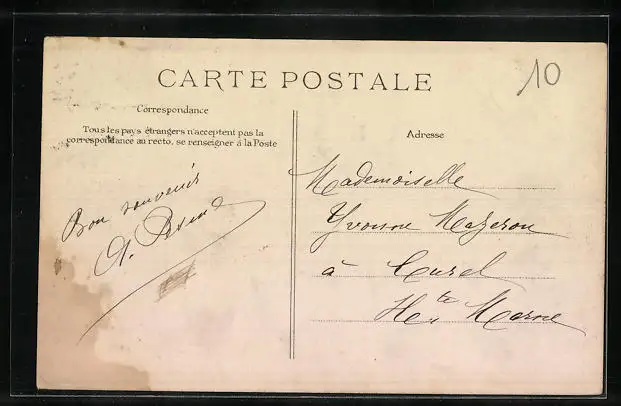 10
CARTE POSTALE
Correspondance
Tous les pays étrangers n'acceptent pas la
correspondance au recto, se renseigner à la Poste
Adresse
Bon souvenir
A.
Mademoiselle
Yvonne Mazeron
à Curel
Hte Marne